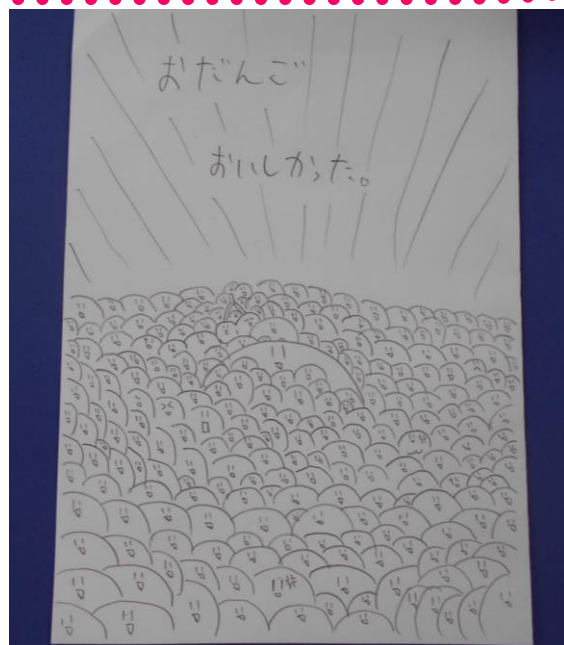 おだんご
おいしかった。